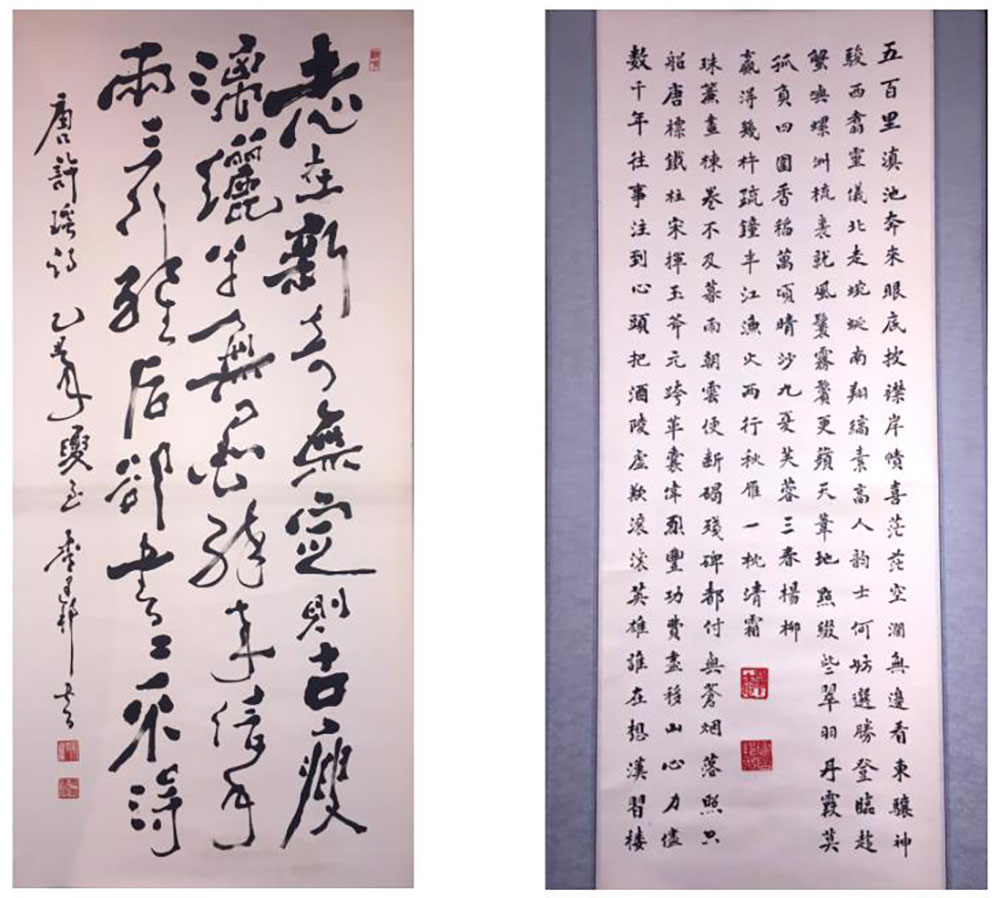 志在新奇無定則古瘦
漓纚半無墨醉來信手
兩三行醒后却書書不得
唐許瑶詩 乙亥年夏至
五百里滇池奔來眼底披襟岸幘喜茫茫空濶無邊看東驤神
駿西翥靈儀北走蜿蜒南翔縞素高人韵士何妨選勝登臨趁
蟹嶼螺洲梳裹就風鬟霧鬢更蘋天葦地點綴些翠羽丹霞莫
孤負四圍香稻萬頃晴沙九夏芙蓉三春楊柳
數千年往事注到心頭把酒陵虛歎滾滾英雄誰在想漢習樓
船唐標鐵柱宋揮玉斧元跨革囊偉烈豐功費盡移山心力儘
珠簾畫棟卷不及暮雨朝雲便斷碣殘碑都付與蒼烟落照只
贏得幾杵疏鐘半江漁火兩行秋雁一枕清霜